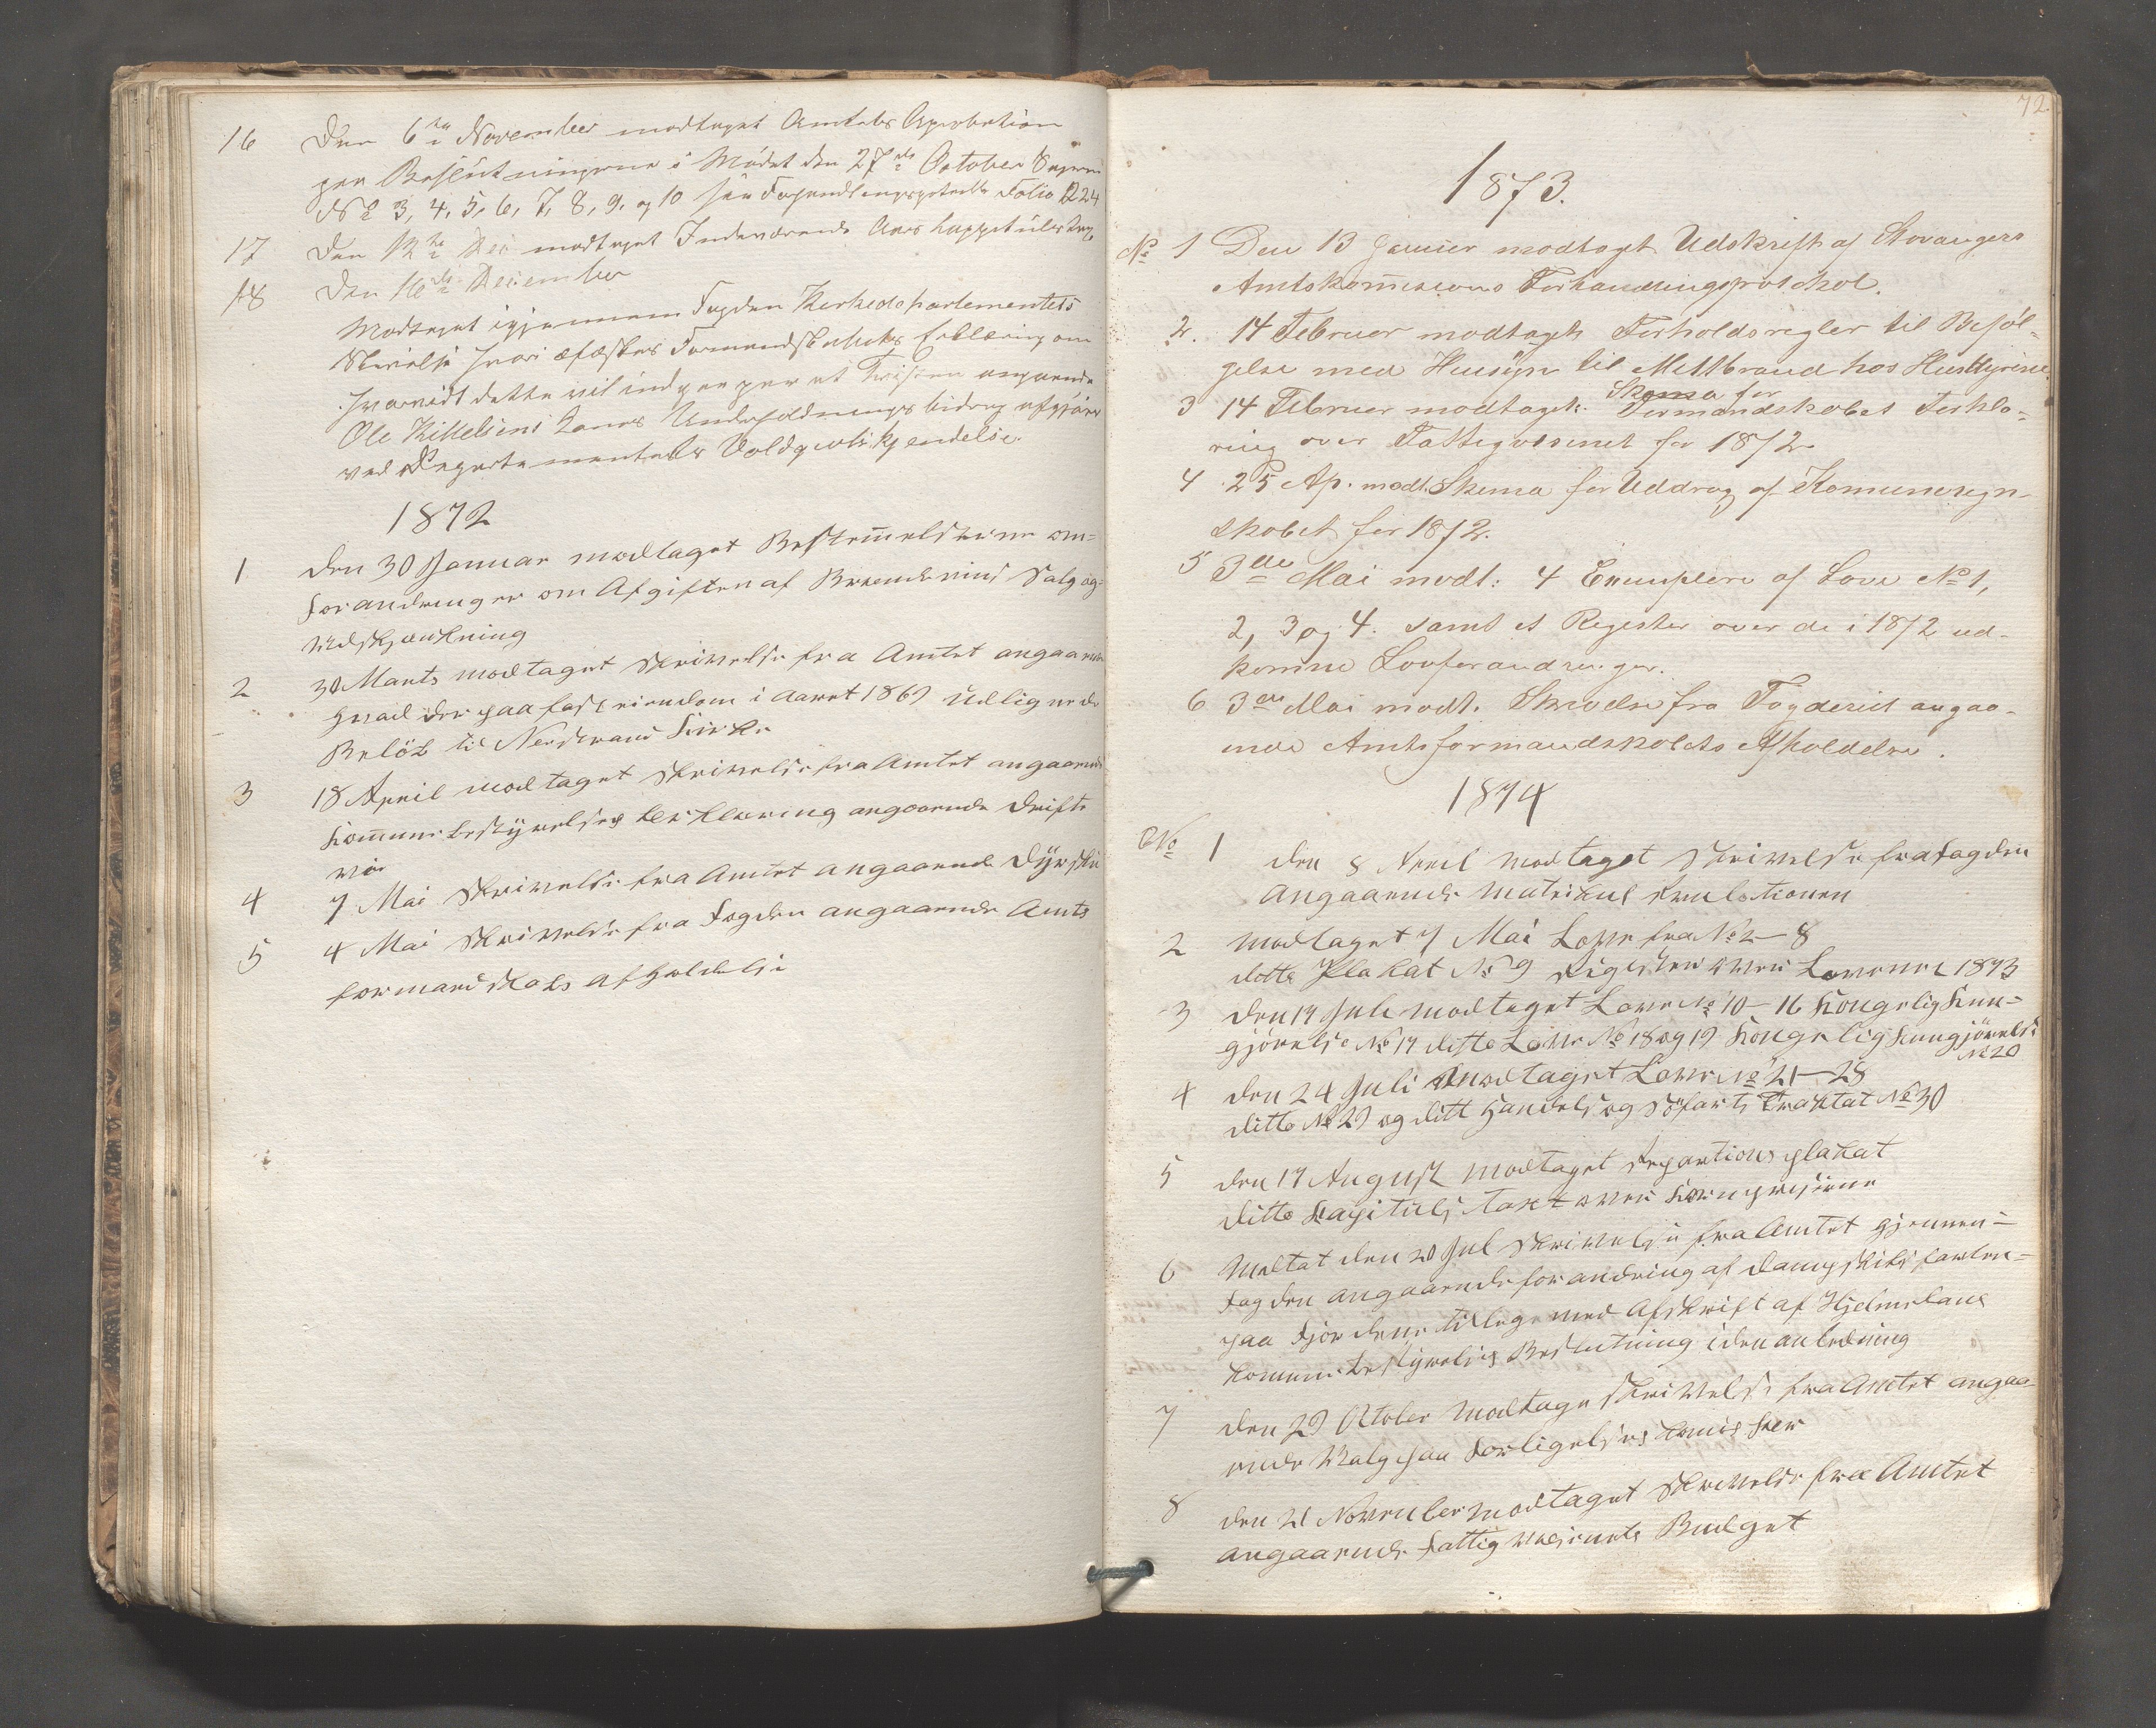 16 Den 6te November modtaget Amtets Aprobation
paa Beslutningerne i Mödet den 27de October
No 3, 4, 5, 6, 7, 8, 9, og 10 See Forhandlingsprotoc Folio 224
17 Den 12te Dec modtaget Indeværende Aars Kappitulstaxt
18 Den 16de December
Modtaget igjennem Fogden Kirkedepartementets
Skrivelse hvori æskes Formandskabets Erklæring om
hvorvidt dette vil indgaa paa at Tvisten angaaende
Ole Kittelsens Underholdningsbidrag afgjöres
ved Departementets Voldgivtskjendelse.
1872
1 den 30 Januar modtaget Bestemelserne om
forandringer om Afgiften af Brændevins Salg og
Udskjænkning
2 30 Marts modtaget Skrivelse fra Amtet angaaende
hvad der paa fast eiendom i Aaret 1869 Udlignede
Belöb til Nerstrand Kirke
3 18 April modtaget Skrivelse fra Amtet angaaende
Komunebestyrelses Erklæring angaaende Drifte
vei
4 7 Mai Skrivelse fra Amtet angaaende Dyrsku
5 4 Mai Skrivelse fra Fogden angaaende Amts
formandskabs afholdelse
72
1873.
No 1 Den 13 Januer modtaget Udskrift af Stavangers
Amtskomisions Forhandlingsprotokol.
2. 14 Februer modtaget Forholdsregler til Beföl=
gelse med Hensyn til Miltbrand hos Husdyrene.
Skema for
3 14 Februer modtaget: Formandskabet Forkla=
ring over Fattigvæsenet for 1872.
4 25 Ap. modt. Skema for Uddrag af Komuneregn-
skabet for 1872.
5 3die Mai modt: 4 Exemplere af Love No 1,
2, 3 og 4. samt et Register over de i 1872 ud-
komne Lovforandringer.
6 3die Mai modt. Skrivelse fra Fogderiet angaa-
ende Amtsformandskabets Afholdelse.
1874
No 1 den 8 April modtaget Skrivelse fra Fogden
Angaaende Matrikul
2 modtaget 7 Mai Love fra No 2–8
ditto Plakat No 9 Register over Lovene 1873
3 den 17 Juli modtaget Love No 10–16 Kongelig Kun=
gjörelse No 17 ditto Love No 18 og 19 Kongelig Kungjörelse
No 20
4 den 24 Juli Modtaget Love No 21–28
ditto No 29 og ditt Handels og Söfarts Traktat No 30
5 den 17 August modtaget Repartions plakat
ditto Kapituls Taxt over Kornpriserne
6 Modtat den 20 Jul Skrivelse fra Amtet gjennem=
Fogden angaaende forandring af Dampskibs farten=
paa Fjordene tillege med Afskrift af Hjelmelans
Komunebestyrelses Beslutning i den anledning
7 den 29 Oktober Modtage Skrivelse fra Amtet angaa
ende Valg paa Forligelses Komisær
8 den 21 November modtaget Skrivelse fra Amtet
angaaende Fattigvæsenets Budget